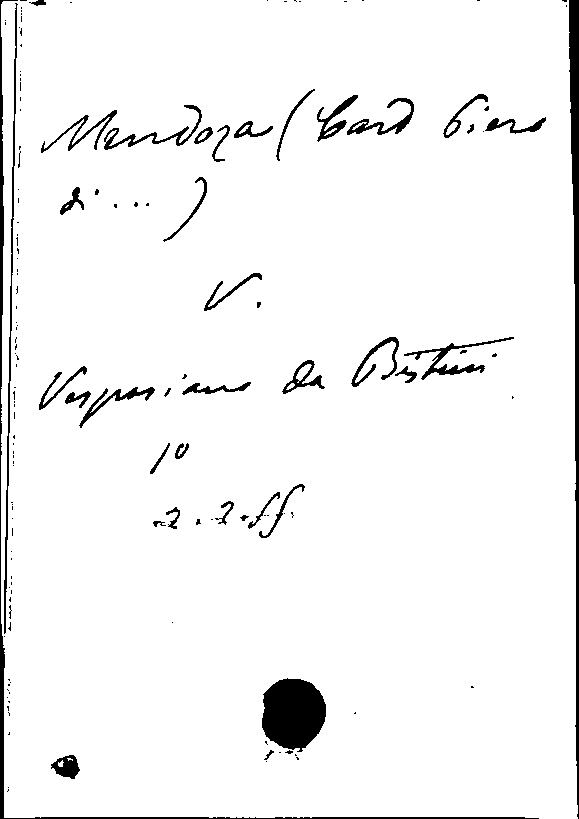 Mendoza (Card Piero
di ... )
V.
Vespasiano da Bisticci
1º
2.2.ff.